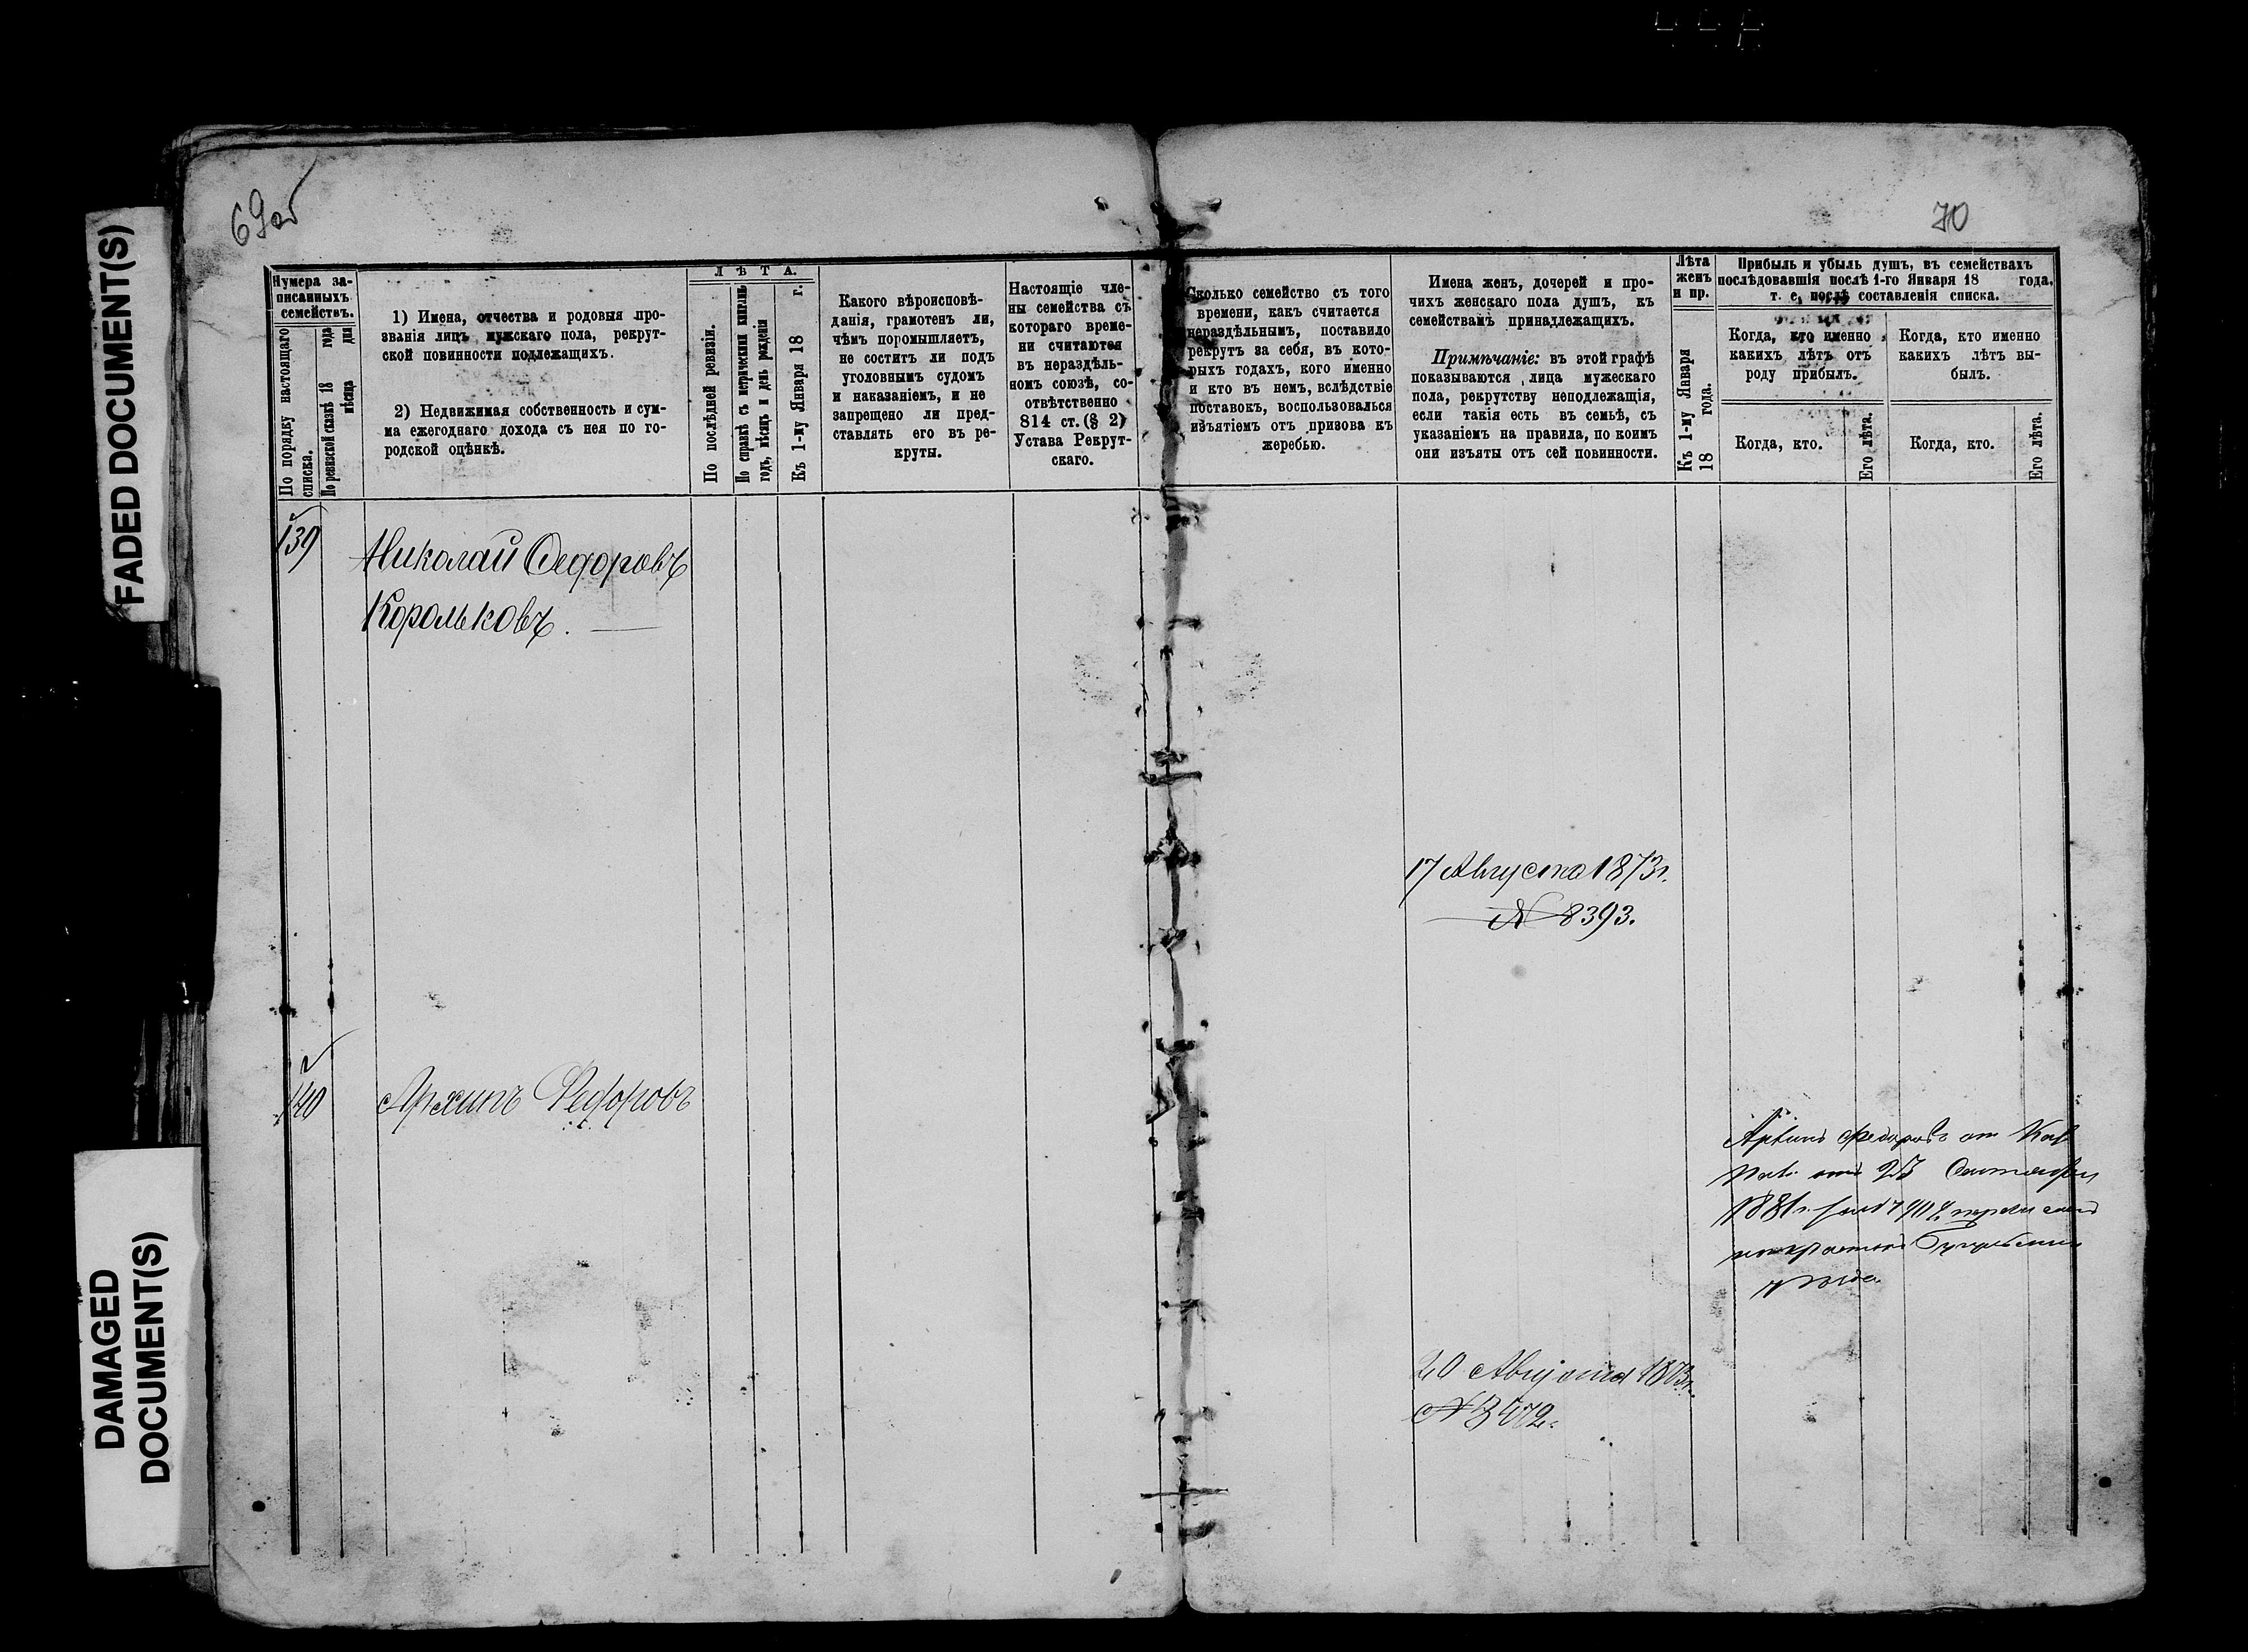 FADED DOCUMENT(S)
DAMAGED
DOCUMENT(S)
69об
70
Нумера за-
писанныхъ
семействъ.
По порядку настоящаго
списка.
По ревизской сказкѣ 18 года
мѣсяца дня
1) Имена, отчества и родовыя про-
званія лицъ мужскаго пола, рекрут-
ской повинности подлежащихъ.
2) Недвижимая собственность и сум-
ма ежегоднаго дохода съ нея по го-
родской оцѣнкѣ.
ЛѢТА.
По послѣдней ревизіи.
По справкѣ съ метрическими книгами
годъ, мѣсяцъ и день рожденія
Къ 1-му Января 18 г.
Какого вѣроисповѣ-
данія, грамотенъ ли,
чѣмъ поромышляетъ,
не соститъ ли подъ
уголовнымъ судомъ
и наказаніемъ, и не
запрещено ли пред-
ставлять его въ ре-
круты.
Настоящіе чле-
ны семейства съ
котораго време-
ни считаются
въ нераздѣль-
номъ союзѣ, со-
отвѣтственно
814 ст. (§ 2)
Устава Рекрут-
скаго.
Сколько семейство съ того
времени, какъ считается
нераздѣльнымъ, поставило
рекрутъ за себя, въ кото-
рыхъ годахъ, кого именно
и кто въ немъ, вслѣдствіе
поставокъ, воспользовался
изъятіемъ отъ призова къ
жеребью.
Имена женъ, дочерей и про-
чихъ женскаго пола душъ, къ
семействамъ принадлежащихъ.
Примѣчаніе: въ этой графѣ
показываются лица мужескаго
пола, рекрутству неподлежащія,
если такія есть въ семьѣ, съ
указаніемъ на правила, по коимъ
они изъяты отъ сей повинности.
Лѣта
женъ
и пр.
Къ 1-му Января
18 года.
Прибыль и убыль душъ, въ семействахъ
послѣдовавшія послѣ 1-го Января 18 года,
т. е. послѣ составленія списка.
Когда, кто именно
какихъ лѣтъ отъ
роду прибылъ.
Когда, кто именно
какихъ лѣтъ вы-
былъ.
Когда, кто.
Его лѣта.
Когда, кто.
Его лѣта.
139
Николай Федоровъ
Корольковъ.
17 Августа 1873 г.
№ 8393.
140
Архипъ Федоровъ
Архипъ Федоровъ
1881 г.
20 Августа 1873 г.